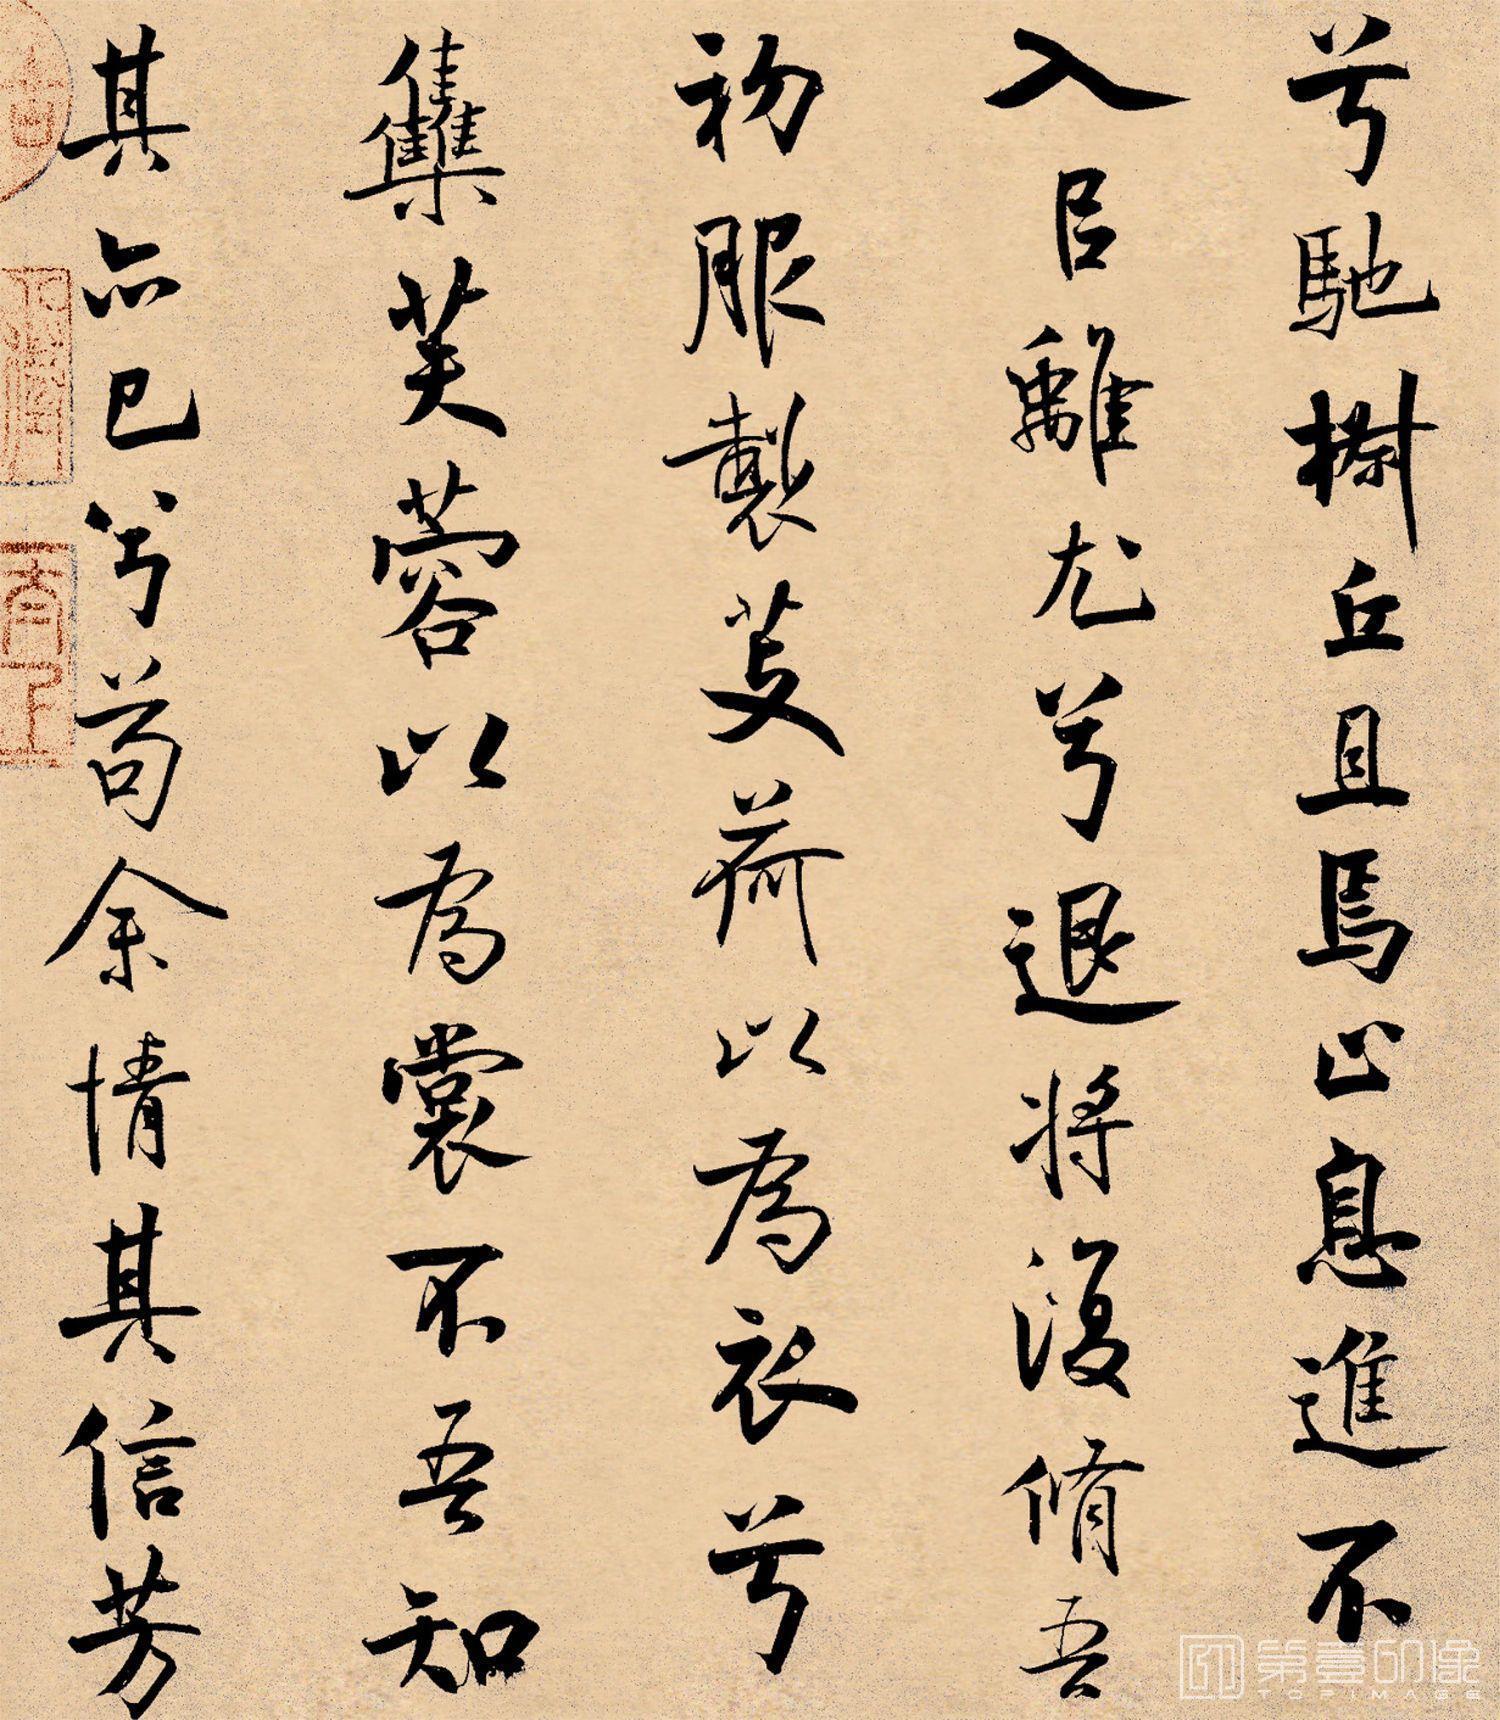 兮馳椒丘且焉止息進不
入㠯離尤兮退將復脩吾
初服製芰荷以為衣兮
雧芙蓉以為裳不吾知
其亦已兮苟余情其信芳
第壹印像
TOPIMAGE